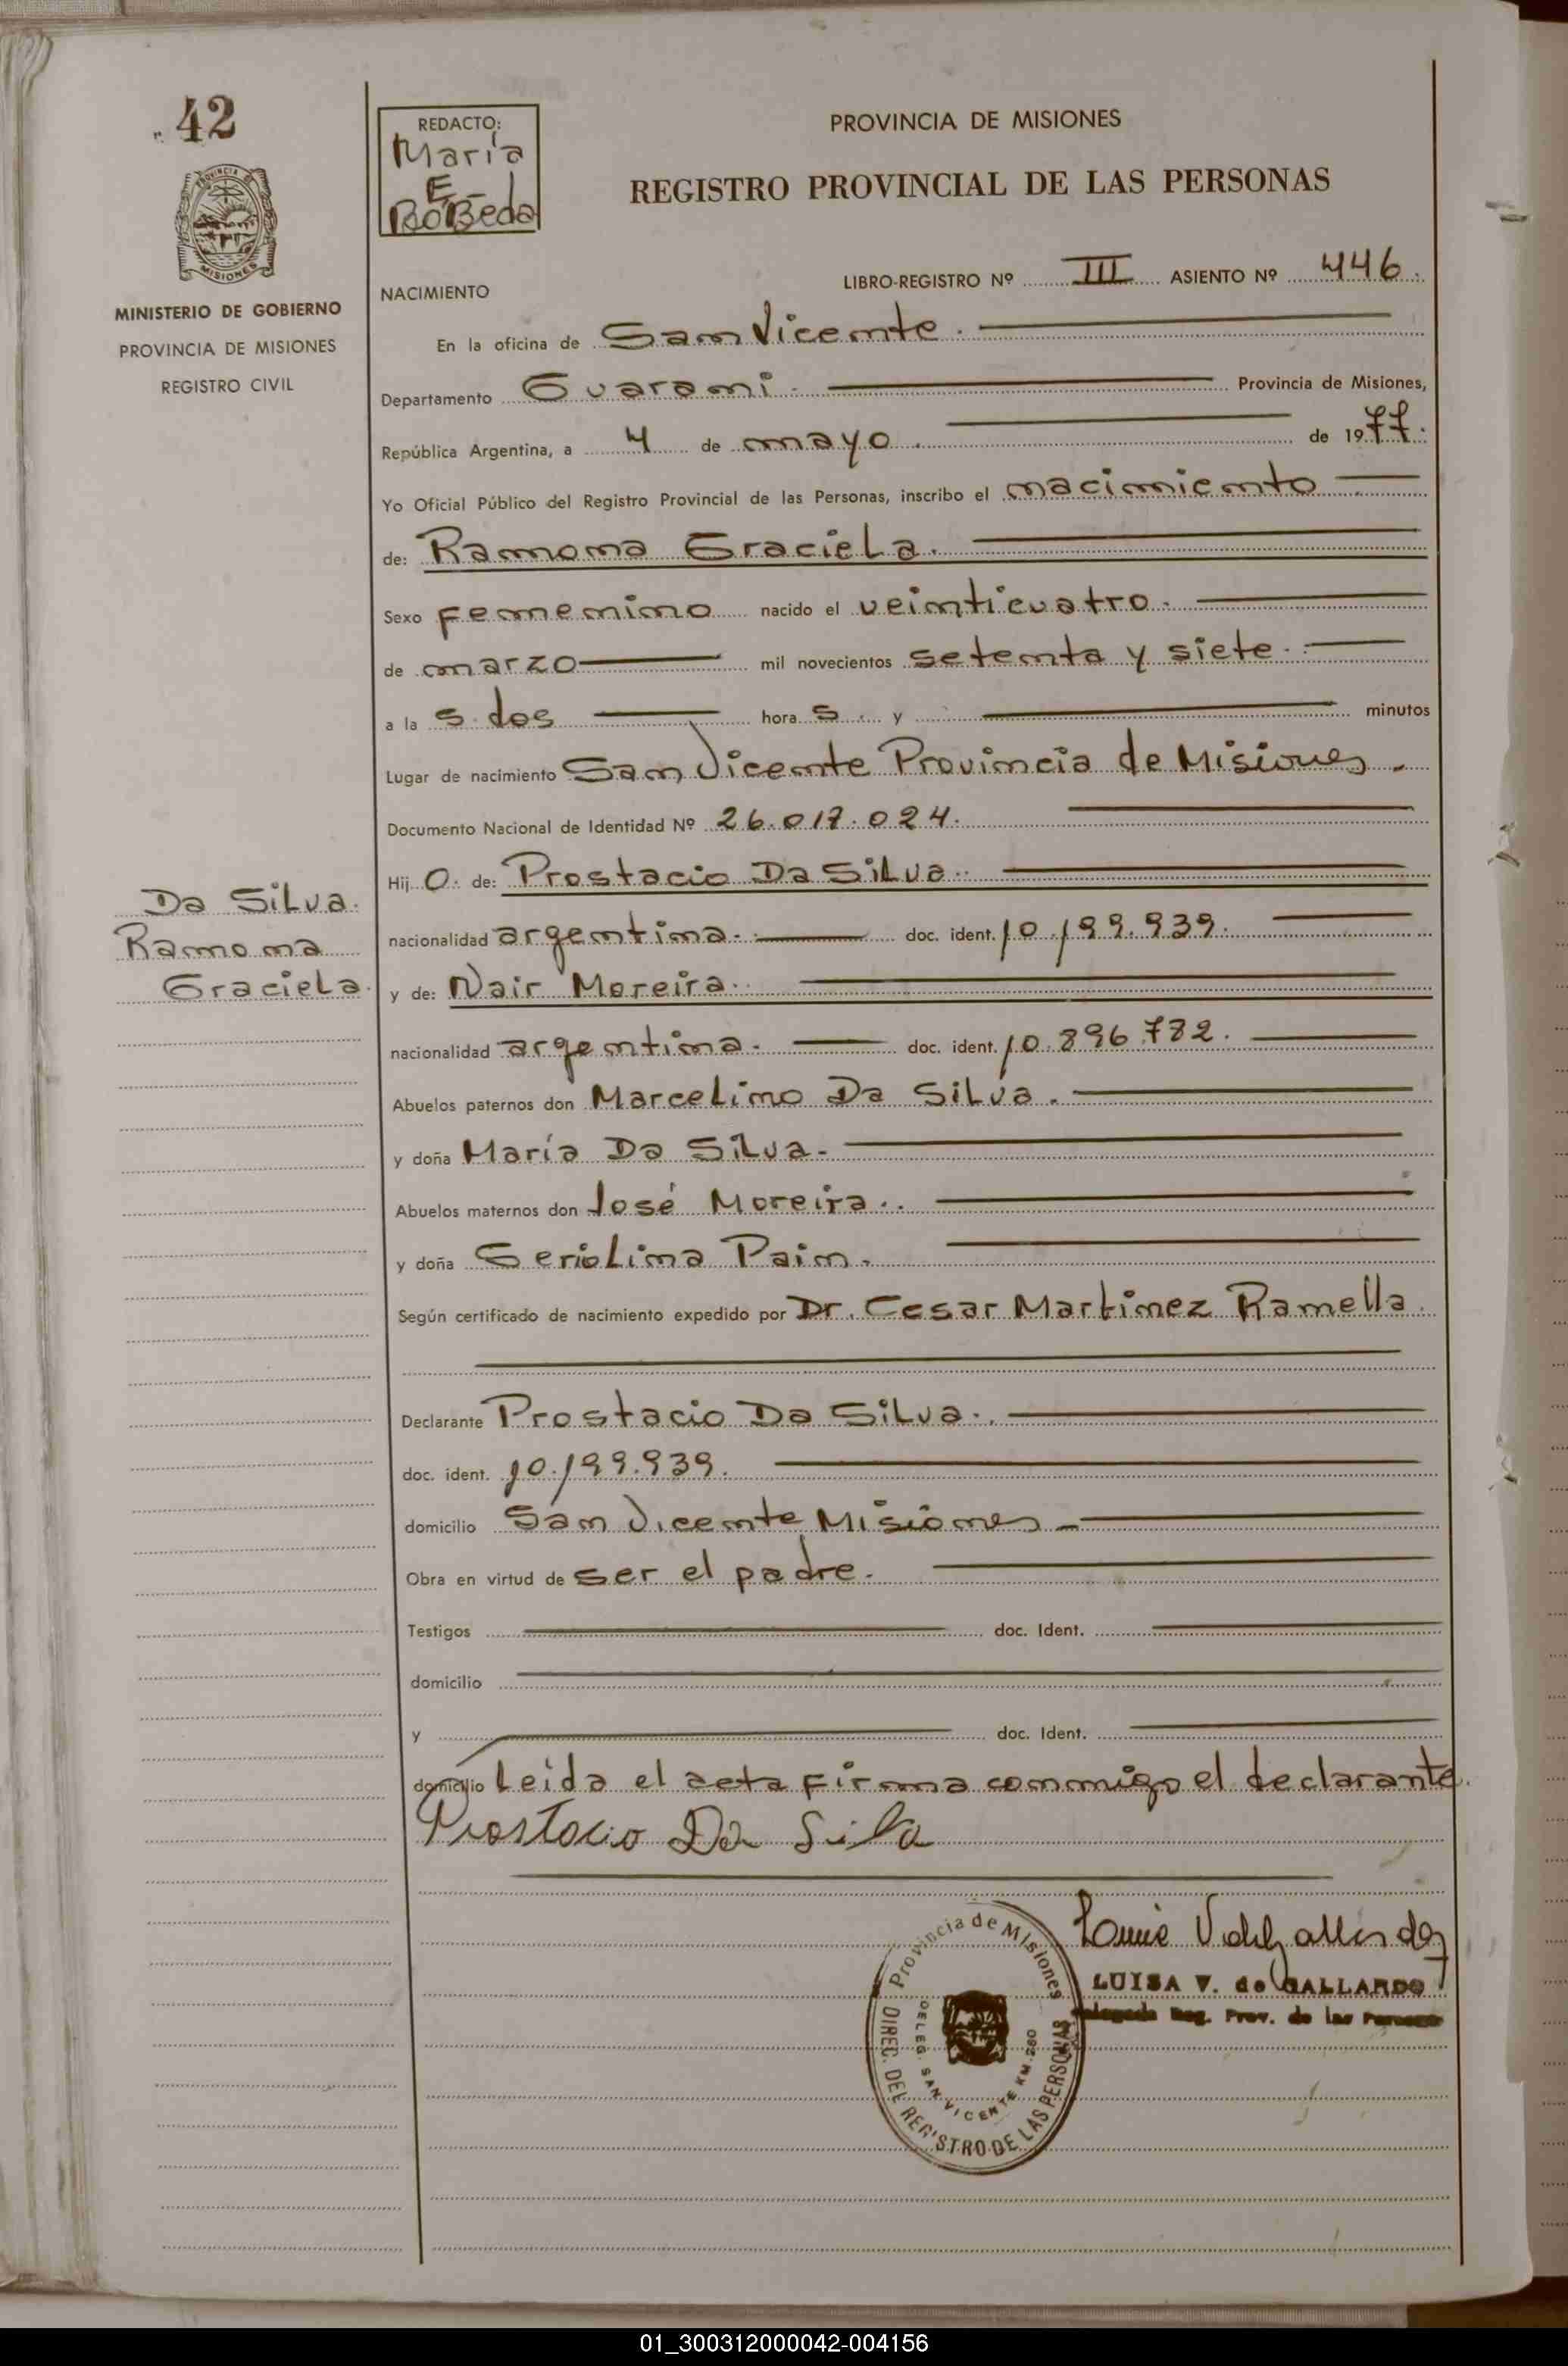 42
REDACTO:
María
E.
BoBeda
PROVINCIA DE MISIONES
REGISTRO PROVINCIAL DE LAS PERSONAS
PROVINCIA DE
MISIONES
MINISTERIO DE GOBIERNO
PROVINCIA DE MISIONES
REGISTRO CIVIL
NACIMIENTO
LIBRO-REGISTRO Nº III ASIENTO Nº 446.
En la oficina de San Vicente.
Departamento Guarani. Provincia de Misiones,
República Argentina, a 4 de mayo. de 1977.
Yo Oficial Público del Registro Provincial de las Personas, inscribo el nacimiento
de: Ramona Graciela.
Sexo femenino nacido el veinticuatro.
de marzo mil novecientos setenta y siete.
a la s dos hora s. y minutos
Lugar de nacimiento San Vicente Provincia de Misiones.
Documento Nacional de Identidad Nº 26.017.024.
Hij O. de: Prostacio Da Silva.
nacionalidad argentina. doc. ident. 10.199.939.
y de: Nair Moreira.
nacionalidad argentina. doc. ident. 10.896.782.
Abuelos paternos don Marcelino Da Silva.
y doña María Da Silva.
Abuelos maternos don José Moreira.
y doña Seriolina Paim.
Según certificado de nacimiento expedido por Dr. Cesar Martinez Ramella.
Declarante Prostacio Da Silva.
doc. ident. 10.199.939.
domicilio San Vicente Misiones
Obra en virtud de ser el padre.
Testigos doc. Ident.
domicilio
y doc. Ident.
domicilio Leida el acta firma conmigo el declarante.
Prostocio Da Sila
Da Silva.
Ramona
Graciela.
Provincia de Misiones
DIREC. DEL REGISTRO DE LAS PERSONAS
DELEG. SAN VICENTE KM. 260
LUISA V. de GALLARDO
Delegada Reg. Prov. de las Personas
01_300312000042-004156